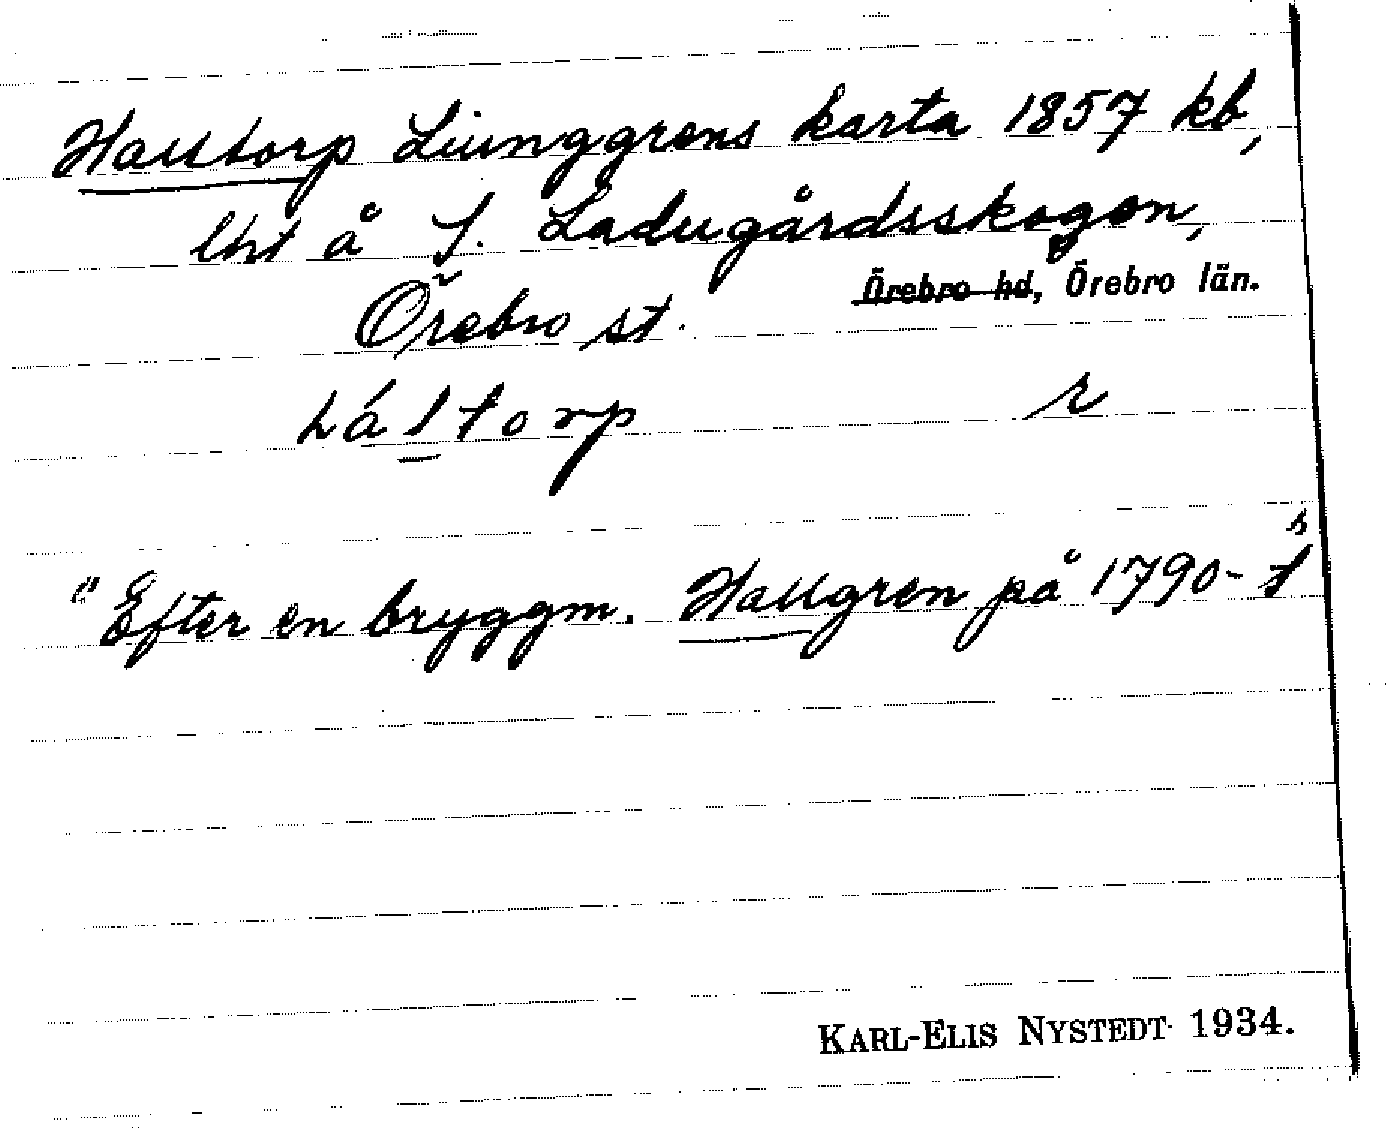 Halltorp Ljunggrens karta 1857 kb,
lht å S. Ladugårdsskogen,
Örebro st. Örebro hd, Örebro län.
háltorp r
"Efter en bryggm. Hallgren på 1790-t s
KARL-ELIS NYSTEDT 1934.